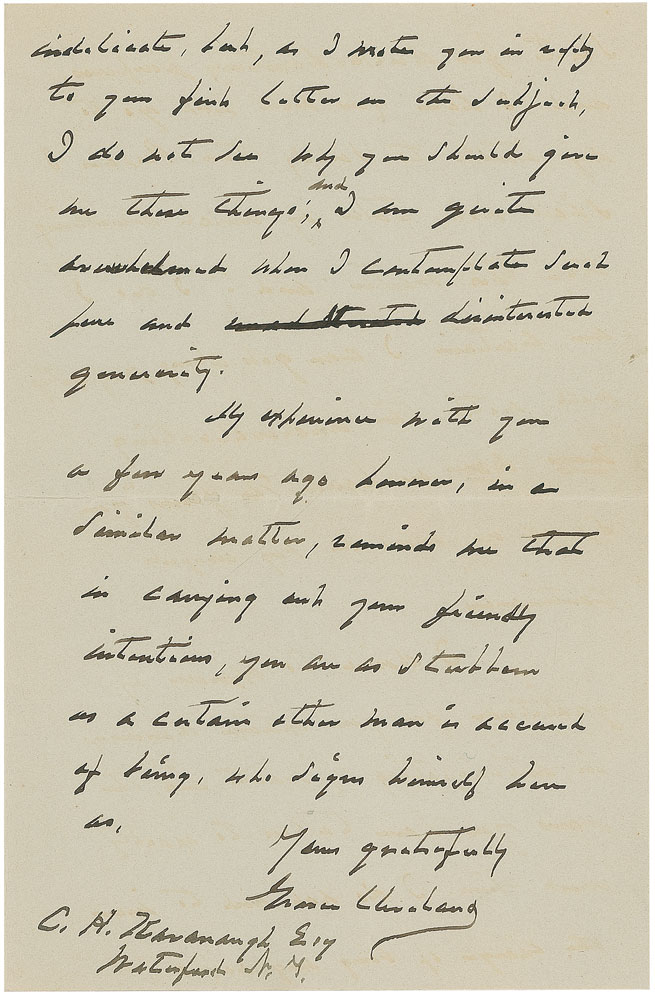 indelicate, but, as I wrote you in reply
to your first letter on the subject,
I do not see why you should give
me these things; and I am quite
overwhelmed when I contemplate such
pure and disinterested
generosity.
My experience with you
a few years ago however, in a
similar matter, reminds me that
in carrying out your friendly
intentions, you are as stubborn
as a certain other man is accused
of being, who signs himself here
as,
Yours gratefully
Grover Cleveland
C. H. Kavanaugh Esq
Waterford N. Y.